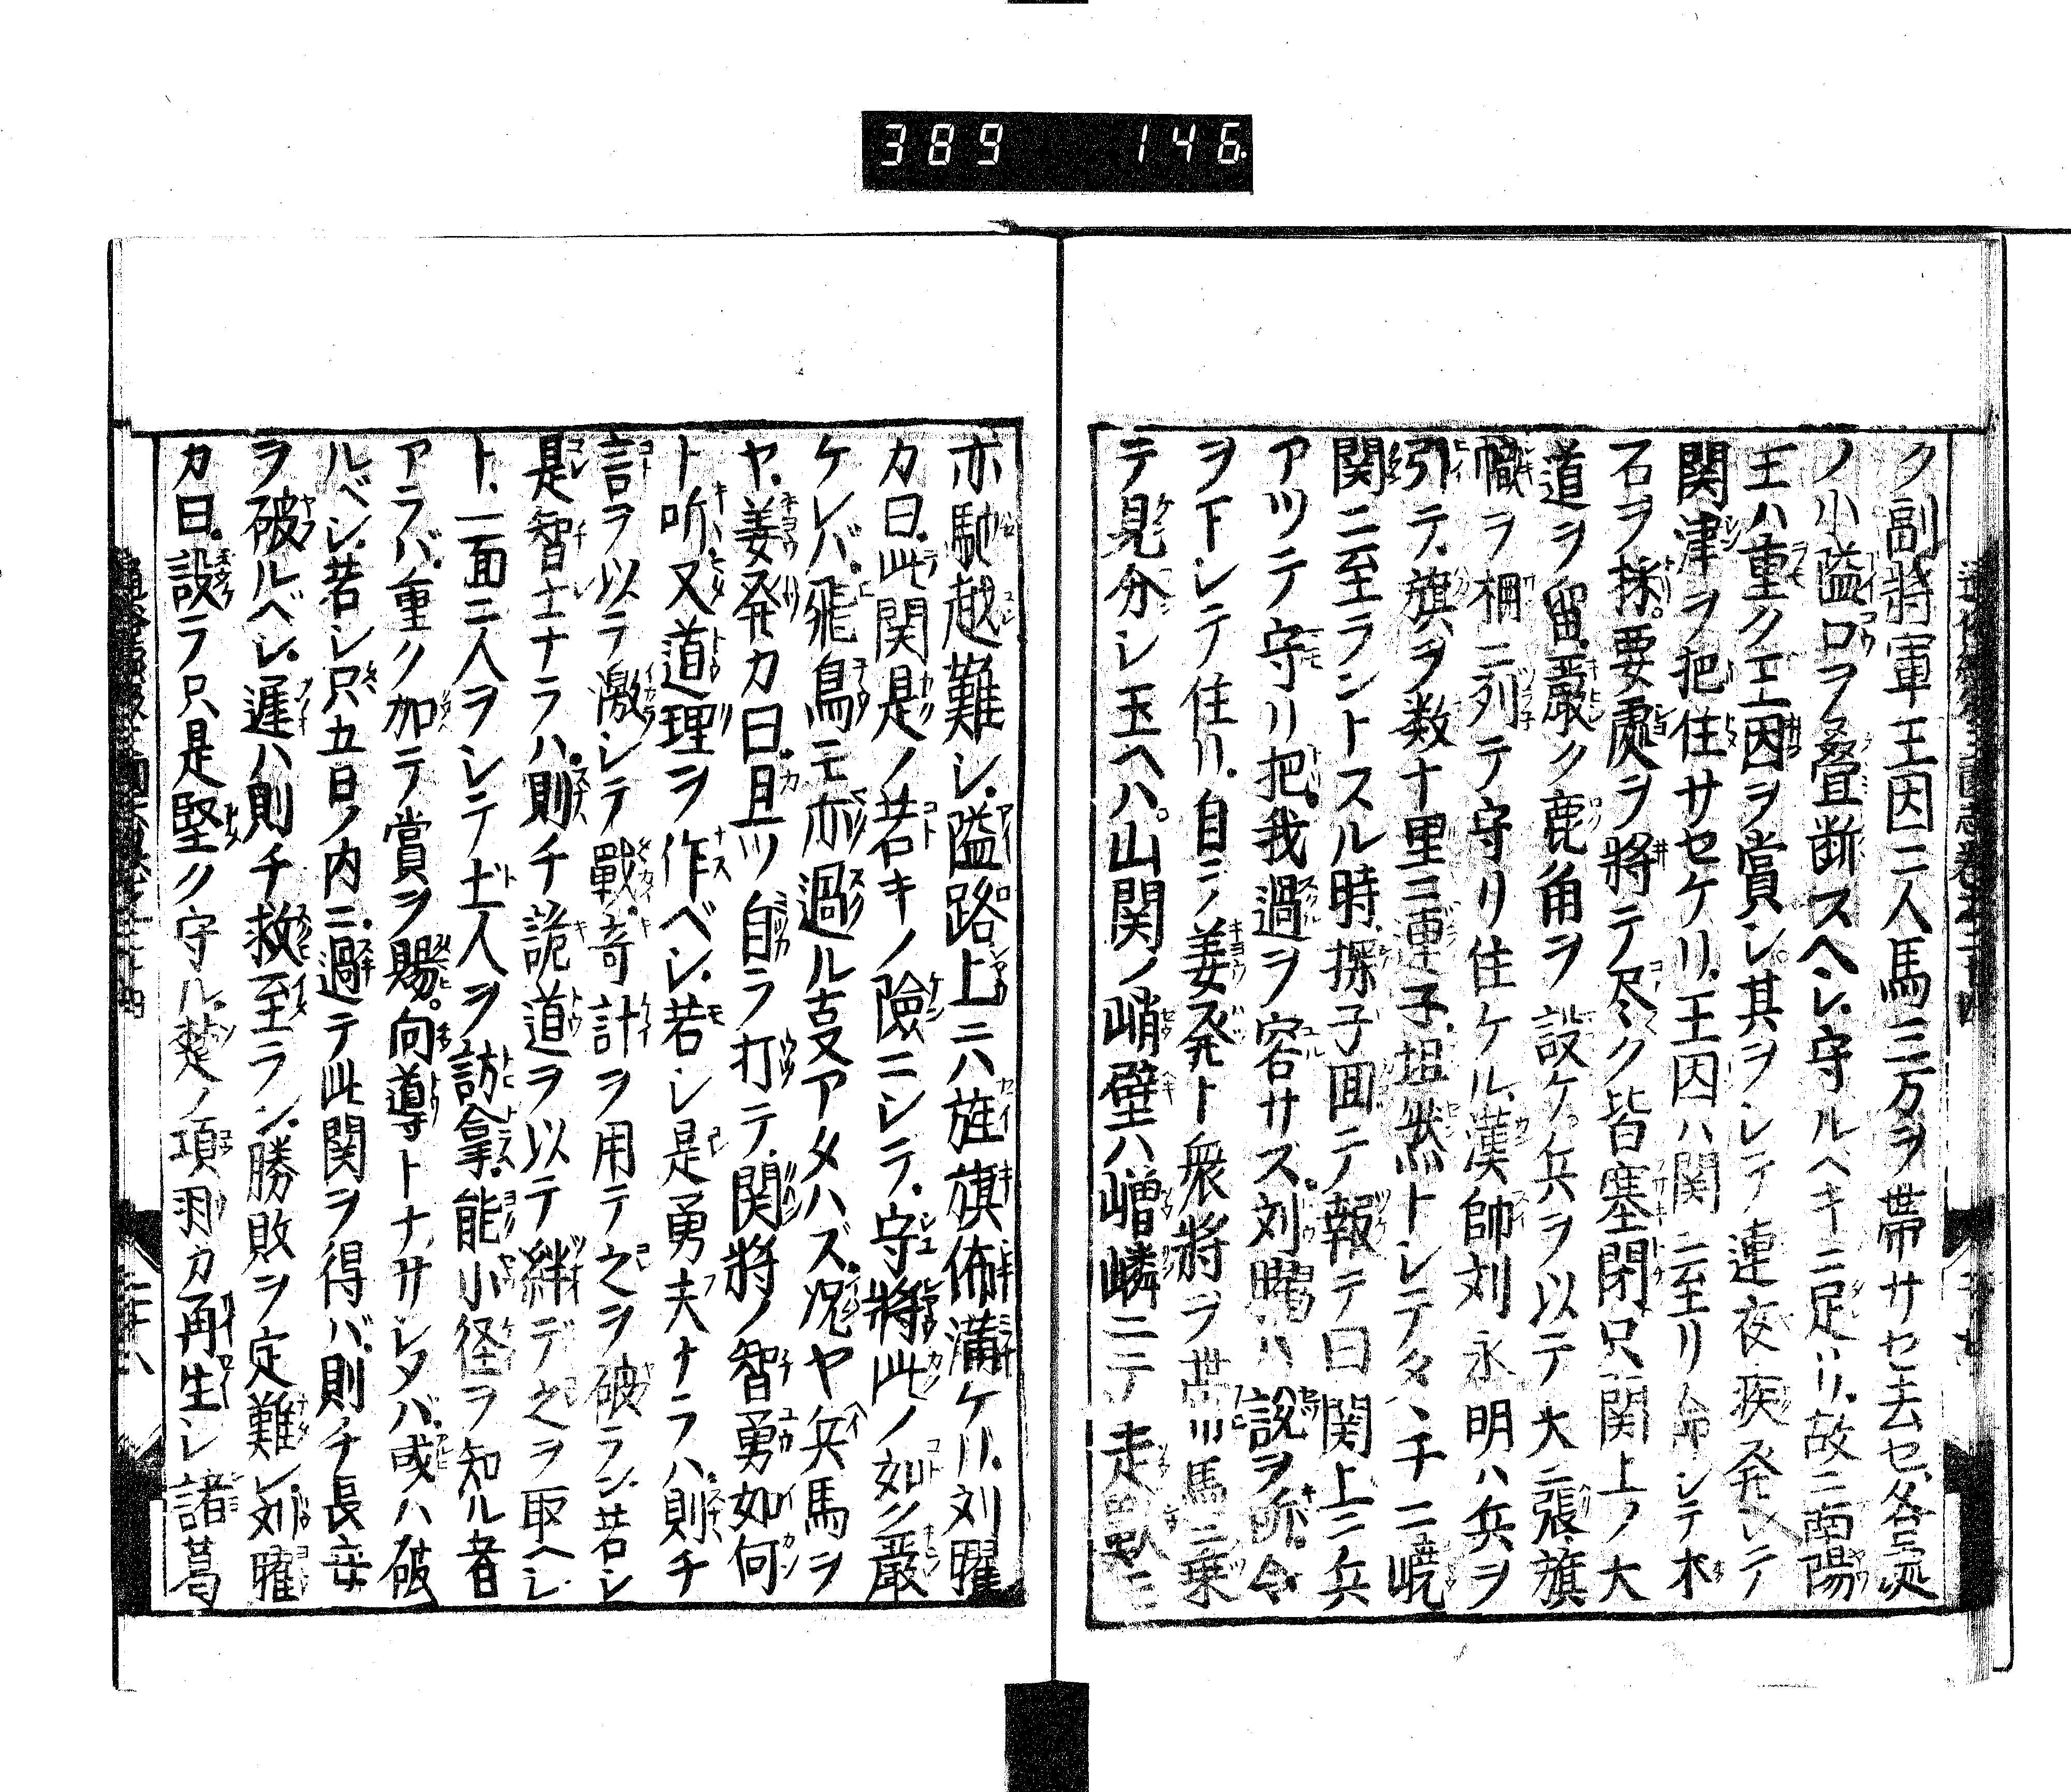 389 146
ク副將軍王因ニ人馬三万ヲ帯サセ去セ各處
ノ小隘口ヲ叠断スヘシ守ルヘキニ足リ故ニ南陽
王ハ重ク王因ヲ賞シ其ヲシテ連夜疾発シテ
関津ヲ把住サセケリ王因ハ関ニ至リ命シテ木
石ヲ採要處ヲ將テ尽ク皆塞閉只関上ノ大
道ヲ留嚴ク鹿角ヲ設ケ兵ヲ以テ大ニ張旗
幟ヲ柵ニ列テ守リ住ケル漢帥刘永明ハ兵ヲ
引テ旗ヲ数十里ニ連子坦然トシテ々チニ嶢
関ニ至ラントスル時探子囬テ報テ曰関上ニ兵
アツテ守リ把我過ヲ容サス刘曜ハ説ヲ听令
ヲ下シテ住リ自ラ姜発ト衆將ヲ帯ニ馬ニ乗
テ見分シ玉ヘハ山関ノ峭壁ハ嶒嶙ニテ走獣ニ
亦馳越難シ隘路上ニハ旌旗佈満ケリ刘曜
カ曰此関是ノ若キノ險ニシテ守將此ノ如ク嚴
ケレバ飛鳥モ亦過ル叓アタハズ况ヤ兵馬ヲ
ヤ姜発カ曰且ツ自ラ打テ関將ノ智勇如何
ト听又道理ヲ作ベシ若シ是勇夫ナラハ則チ
言ヲ以テ激シテ戰奇計ヲ用テ之ヲ破ラン若シ
是智士ナラハ則チ詭道ヲ以テ絆デ之ヲ取ヘシ
ト一面ニ人ヲシテ土人ヲ訪拿能小径ヲ知ル者
アラバ重ク加テ賞ヲ賜向導トナサシタバ或ハ破
ルベシ若シ只五日ノ内ニ過テ此関ヲ得バ則チ長安
ヲ破ルベシ遅ハ則チ救至ラン勝敗ヲ定難シ刘曜
カ曰設ラ只是堅ク守ル楚ノ項羽カ再生シ諸葛